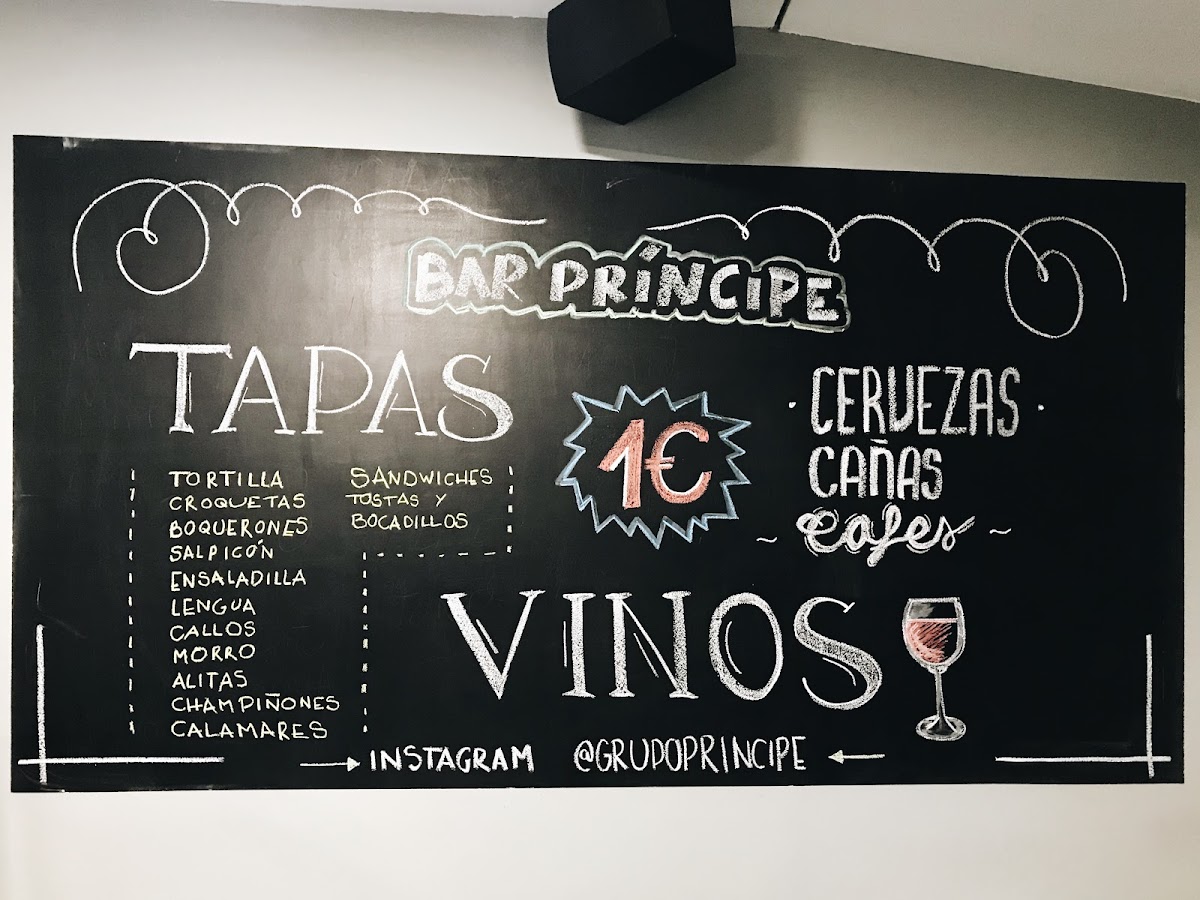 BAR PRÍNCIPE
TAPAS
TORTILLA
CROQUETAS
BOQUERONES
SALPICÓN
ENSALADILLA
LENGUA
CALLOS
MORRO
ALITAS
CHAMPIÑONES
CALAMARES
SANDWICHES
TOSTAS Y
BOCADILLOS
1€
CERVEZAS
CAÑAS
Cafes
VINOS
INSTAGRAM @GRUPOPRINCIPE